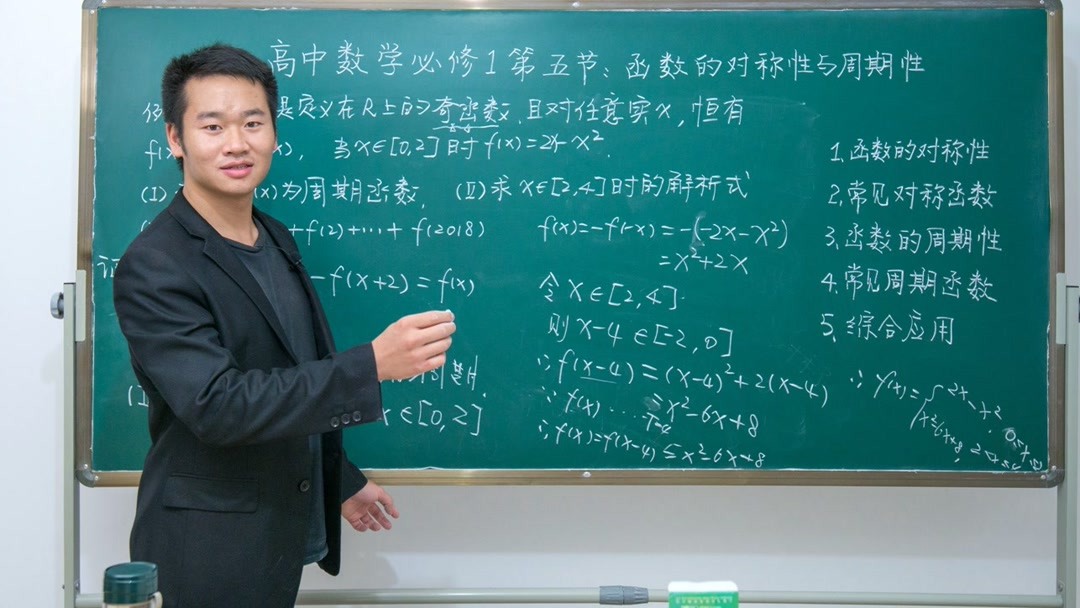 高中数学必修1第五节:函数的对称性与周期性
例 是定义在R上的奇函数,且对任意实x,恒有
f( x), 当x∈[0,2]时f(x)=2x-x².
(I) (x)为周期函数, (II)求x∈[2,4]时的解析式
+f(2)+⋯+f(2018)
证
-f(x+2)=f(x)
x∈[0,2]
f(x)=-f(-x)=-(-2x-x²)
=x²+2x
令x∈[2,4].
则x-4∈[-2,0]
∵f(x-4)=(x-4)²+2(x-4)
=x²-6x+8
∴f(x)=f(x-4)=x²-6x+8
1.函数的对称性
2.常见对称函数
3.函数的周期性
4.常见周期函数
5.综合应用